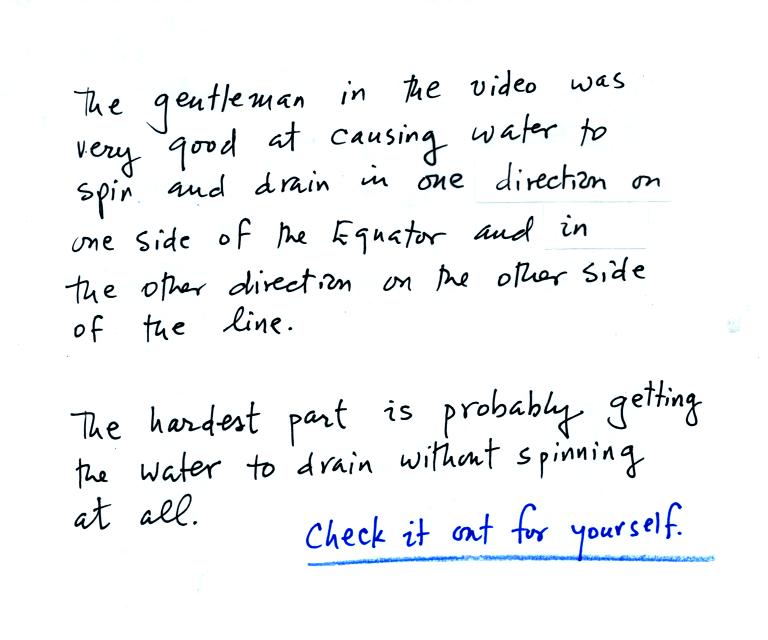 The gentleman in the video was
very good at causing water to
spin and drain in one direction on
one side of the Equator and in
the other direction on the other side
of the line.
The hardest part is probably getting
the water to drain without spinning
at all.
Check it out for yourself.